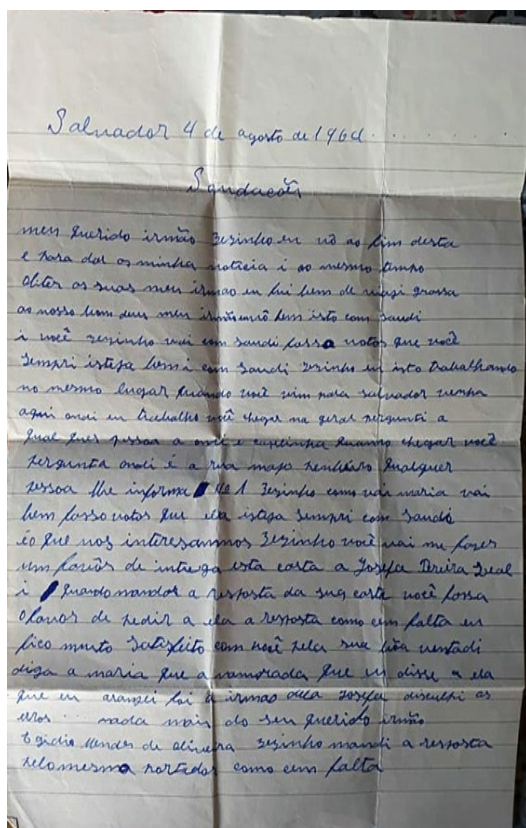 Salvador 4 de agosto de 1964
Saudacões
meu querido irmão zezinho eu vô ao fim desta
e para dar os minha noticia i ao mesmo tempo
obter as suas meu irmão eu fui bem de viagi grassa
ao nosso bom deus meu irmão envô bem isto com saudi
i você zezinho vai com saudi fasso votos que você
sempri isteja bem i com saudi zezinho eu isto trabalhando
no mesmo lugar quando você vim para salvador venha
aqui ondi eu trabalho você chegar na geral pergunti a
qual quer pessoa a ondi e caxinha quanno chegar você
pergunta ondi é a rua majo qualquer
pessoa lhe informa No 1 zezinho como vai maria vai
bem fasso votos que ela isteja sempri com saudi
é o que nos interesammos zezinho você vai me fazer
um favor de intrega esta carta a Josefa Pereira Leal
i quando mandar a resposta da sua carta você fassa
o favor de pedir a ela a resposta como cem falta eu
fico munto satisfeito com você pela sua bôa ventadi
diga a maria que a namorada que eu disse a ela
que eu aranjei foi a irmão dela Josefa disculpi os
erros nada mais do seu querido irmão
Egidio Mendes de oliveira zezinho mandi a resposta
pelo mesmo portador como cem falta